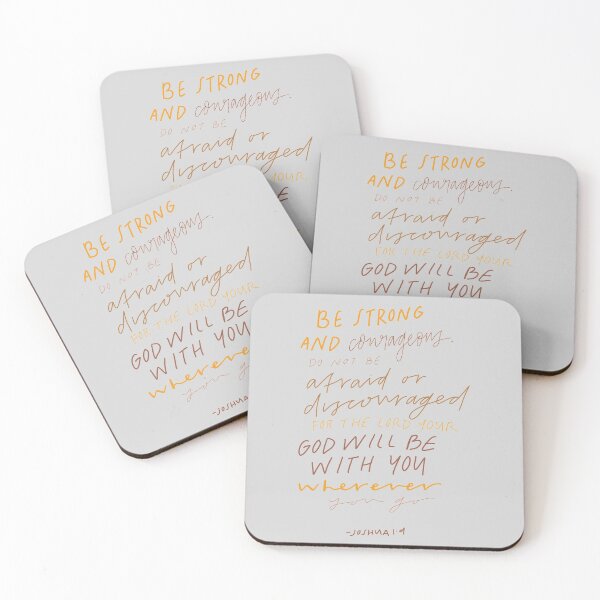 BE STRONG
AND courageous.
DO NOT BE
afraid or
discouraged
YOUR
BE
BE STRONG
AND courageous.
DO NOT BE
afraid or
discouraged
FOR THE LORD YOUR
GOD WILL BE
WITH YOU
BE STRONG
AND courageous.
DO NOT BE
afraid or
discouraged
FOR THE LORD YOUR
GOD WILL BE
WITH YOU
wherever
you go
-JOSHUA
BE STRONG
AND courageous.
DO NOT BE
afraid or
discouraged
FOR THE LORD YOUR
GOD WILL BE
WITH YOU
wherever
you go
-JOSHUA 1:9